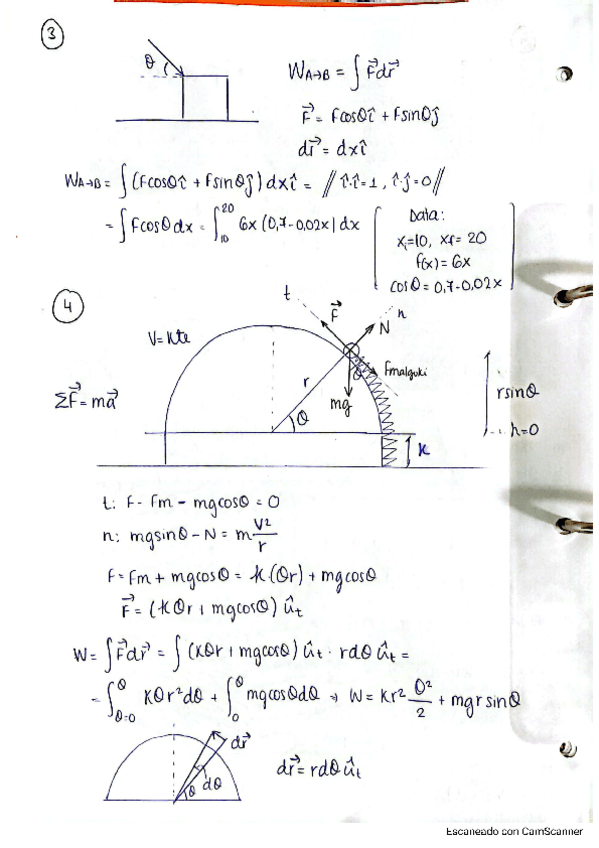 3
θ
W_{A→B} = ∫ F⃗dr⃗
F⃗ = Fcosθî + Fsinθĵ
dr⃗ = dxî
W_{A→B} = ∫ (Fcosθî + Fsinθĵ) dxî = // î·î=1, î·ĵ=0//
= ∫ Fcosθ dx = ∫_{10}^{20} 6x (0,7-0,02x) dx
Data:
x_i=10, x_f= 20
f(x) = 6x
cosθ = 0,7-0,02x
4
t
n
F⃗
N
V=Kte
Fmalguki
θ
r
mg
rsinθ
ΣF⃗=ma⃗
θ
h=0
K
t: F - Fm - mgcosθ = 0
n: mgsinθ - N = m V²/r
F = Fm + mgcosθ = K(θr) + mgcosθ
F⃗ = (Kθr + mgcosθ) û_t
W = ∫ F⃗dr⃗ = ∫ (Kθr + mgcosθ) û_t · rdθ û_t =
= ∫_{θ=0}^{θ} Kθr²dθ + ∫_{0}^{θ} mgcosθdθ → W = Kr² θ²/2 + mgrsinθ
dr⃗
dθ
θ
dr⃗ = rdθ û_t
Escaneado con CamScanner